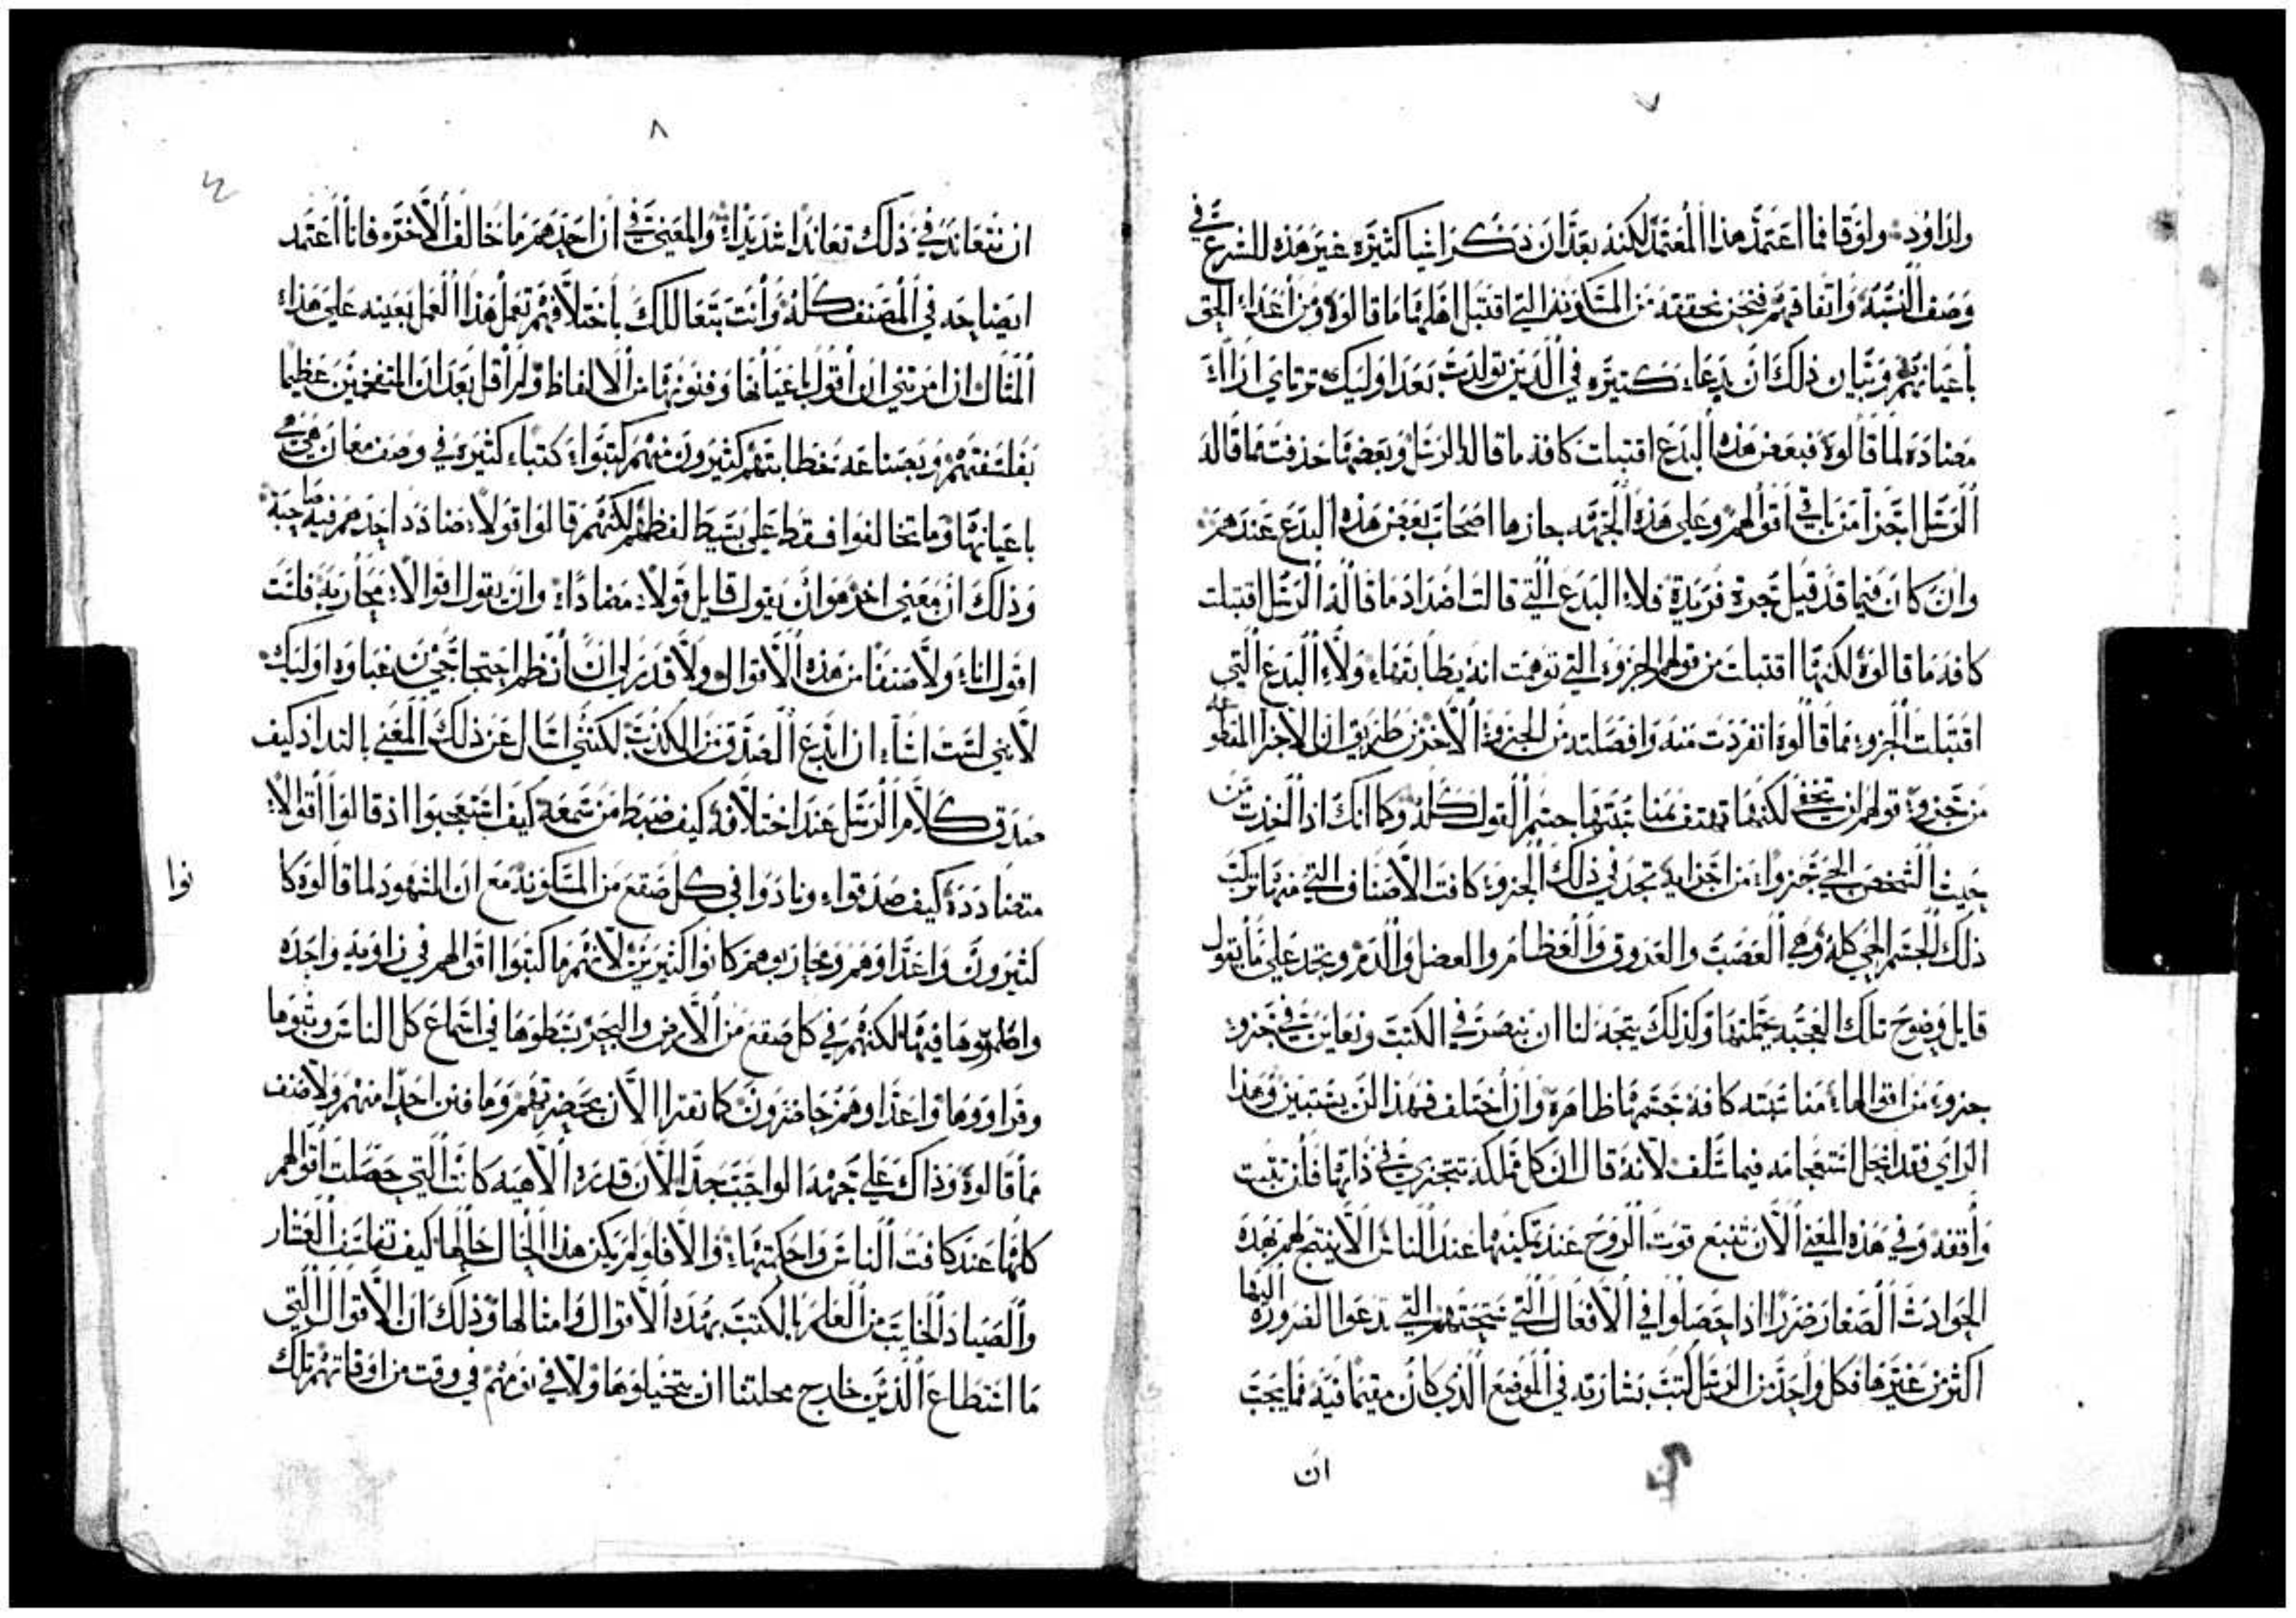 ٧
ولداوود ولوقا فما اعتمد هذا المعتمد لكنه بعد ان ذكر اشيا كثيره غير هذه للشرع في
وصف النسبه واتفاقهم فنحن نحققه من المسكونه التي اقتبل اهلها ما قالوه ومن اعداء الحق
باعيانهم وبيان ذلك ان بدعاء كثيره في الذين تولدت بعد اوليك ترتاي اراء
مضاده لما قالوه فبعض هذه البدع اقتبلت كافة ما قاله الرسل وبعضها حذفت مما قاله
الرسل اجزا من باقي اقوالهم وعلي هذه الجهه حازها اصحاب بعض هذه البدع عندهم
وان كان فيما قد قيل فلاء البدع التي قالت اضداد ما قاله الرسل اقتبلت
كافة ما قالوه لكنها اقتبلت من قولهم الجزوء التي توهمت انه يطابقها ولاء البدع التي
اقتبلت الجزوء مما قالوه انفردت منه وافصلته من الجزوء الاخر من طريق ان الاجزا المقطوعه
من جزوء قولهم لن تخفي لكنها تهتف بمناسبتها جسم القول كله وكما انك اذا اخذت من
جيث الشخص الحي جزواء من اجزايه تجد في ذلك الجزوء كافت الاصناف التي منها تركب
ذلك الجسم الحي كله وهي العصب والعروق والعظام والعضل والدم وتجد علي ما يقول
قايل وضوح تلك العجبه بجملتها وكذلك يتجه لنا ان نبصر في الكتب ونعاين في جزوء
جزوء من اقوالها مناسبته كافة جسمها ظاهره وان اختلف فهذا لن يستبين وهذا
الراي فقد انحل استعجامه فيما سلف لانه قال ان كل مملكه تتجزي في ذاتها فلن تثبت
واقفه وفي هذه المعني الان تنبع قوت الروح عند تمكينها عند الناس الا ينتج لهم بهذه
الحوادث الصغار ضررا اذا حصلوا في الافعال التي تدعوا الضروره اليها
اكثر من غيرها فكل واحد من الرسل كتب بشارته في الموضع الذي كان مقيما فيه فما يجب
ان
٨
ان نتعاند في ذلك تعاندا شديدا والمعني في ان احدهم ما خالف الاخر فانا اعتمد
ايضاحه في المصنف كله وانت بتعاللك باختلافهم تعمل هذا العمل بعينه علي هذا
المثال اذا امرتني ان اقول باعيانها وفنونها من الالفاظ ولم اقل بعد ان المتفخمين عظيما
بفلسفتهم وبصناعة خطابتهم كثيرون منهم كتبواء كتباء كثيره في وصف معان هي هي
باعيانها وما تخالفوا فقط علي بسيط لفظهم لكنهم قالوا قولا ضادد احدهم فيه صاحبه
وذلك ان معني اخر هو ان يقول قايل قولا مضادا وان يقول اقوالا محاربه فلست
اقول اناء ولا صنفا من هذه الاقوال ولا قدر لي ان انظم احتجاجي من غباوه اوليك
لانني لست اشاء ان ابدع الصدق من الكذب لكنني اسال عن ذلك المعني بالتداذ كيف
صدق كلام الرسل عند اختلافه كيف ضبط من سمعه كيف استعجبوا اذ قالوا اقوالا
متضادده كيف صدقواء ونادوا في كل صقع من المسكونه مع ان الشهود لما قالوه كا
نوا
كثيرون واعداوهم ومحاربوهم كانوا كثيرين لانهم ما كتبوا اقوالهم في زاويه واحده
واطمروها فيها لكنهم في كل صقع من الارض والبحر بسطوها في استماع كل الناس وبثوها
وقراووها واعداوهم حاضرون كما تقرا الان بحضرتهم وما فتن احدا منهم ولا صنف
مما قالوه وذاك علي جهة الواجب جدا لان قدره الاهيه كانت التي حصلت اقوالهم
كلها عند كافت الناس واحكمتها والا فلو لم يكن هذا الحال حالها كيف تفلسف العشار
والصياد الخايب من العلم بالكتب بهذه الاقوال وامثالها وذلك ان الاقوال التي
ما استطاع الذين خارج محلتنا ان يتخيلوها ولا في نومهم في وقت من اوقاتهم تلك